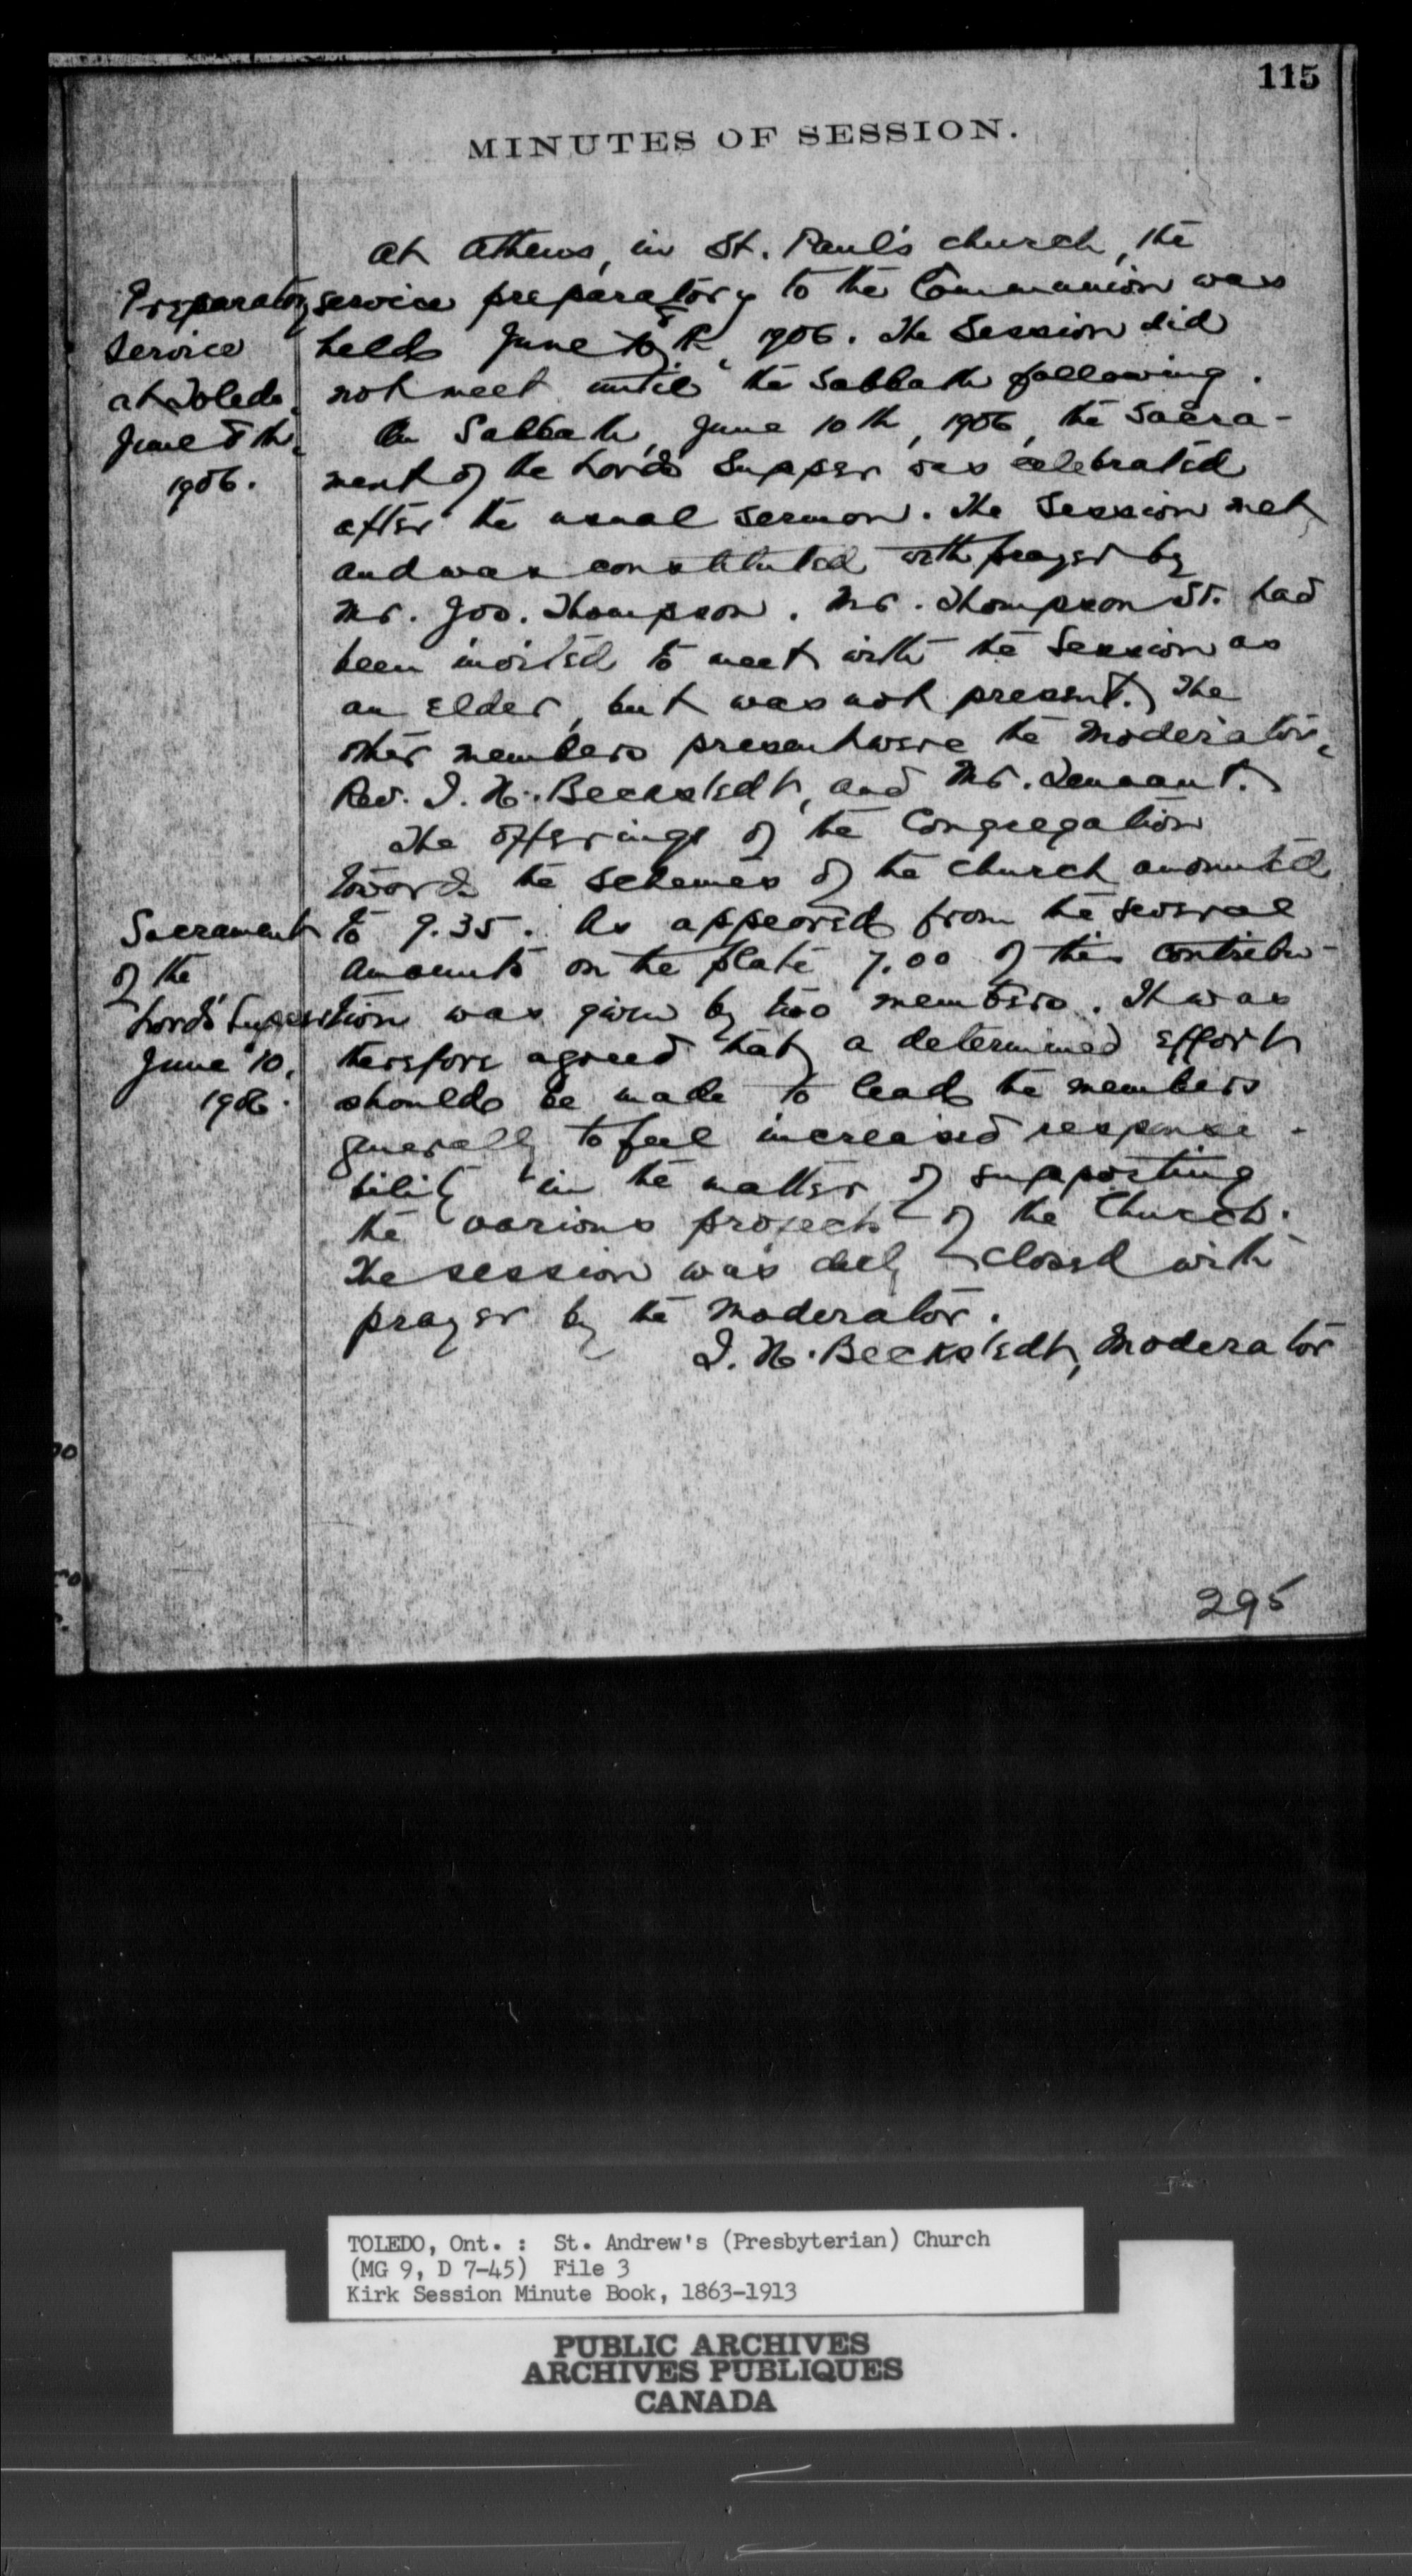 115
MINUTES OF SESSION.
At Athens, in St. Paul's church, the
service preparatory to the Communion was
held June 8th, 1906. The Session did
not meet until the Sabbath following.
Preparatory
Service
at Toledo,
June 8th,
1906.
On Sabbath, June 10th, 1906, the Sacra-
ment of the Lord's Supper was celebrated
after the usual sermon. The Session met
and was constituted with prayer by
Mr. Joo. Thompson. Mr. Thompson Sr. had
been invited to meet with the Session as
an Elder, but was not present. The
other members present were the Moderator,
Rev. I. N. Beckstedt, and Mr. Tennant.
The offerings of the Congregation
towards the schemes of the church amounted
to 9.35. As appeared from the several
amounts on the plate 7.00 of this contribu-
tion was given by two members. It was
therefore agreed that a determined effort
should be made to lead the members
generally to feel increased responsi-
bility in the matter of supporting
the various projects of the Church.
The session was duly closed with
prayer by the Moderator.
I. N. Beckstedt, Moderator
Sacrament
of the
Lord's Supper
June 10,
1906.
295
TOLEDO, Ont. : St. Andrew's (Presbyterian) Church
(MG 9, D 7-45) File 3
Kirk Session Minute Book, 1863-1913
PUBLIC ARCHIVES
ARCHIVES PUBLIQUES
CANADA